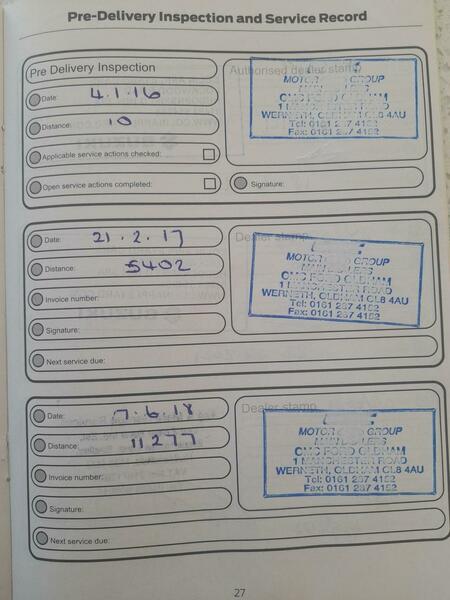 Pre-Delivery Inspection and Service Record
Pre Delivery Inspection
Date: 4.1.16
Distance: 10
Applicable service actions checked:
Open service actions completed:
Authorised dealer stamp
MOTOR GROUP
OMC FORD OLDHAM
1 MANCHESTER ROAD
WERNETH, OLDHAM OL8 4AU
Tel: 0161 287 4152
Fax: 0161 287 4152
Signature:
Date: 21.2.17
Distance: 5402
Invoice number:
Signature:
Next service due:
Dealer stamp
MOTOR GROUP
MAIN DEALERS
OMC FORD OLDHAM
1 MANCHESTER ROAD
WERNETH, OLDHAM OL8 4AU
Tel: 0161 287 4152
Fax: 0161 287 4152
Date: 7.6.18
Distance: 11277
Invoice number:
Signature:
Next service due:
Dealer stamp
MOTOR GROUP
MAIN DEALERS
OMC FORD OLDHAM
1 MANCHESTER ROAD
WERNETH, OLDHAM OL8 4AU
Tel: 0161 287 4152
Fax: 0161 287 4152
27